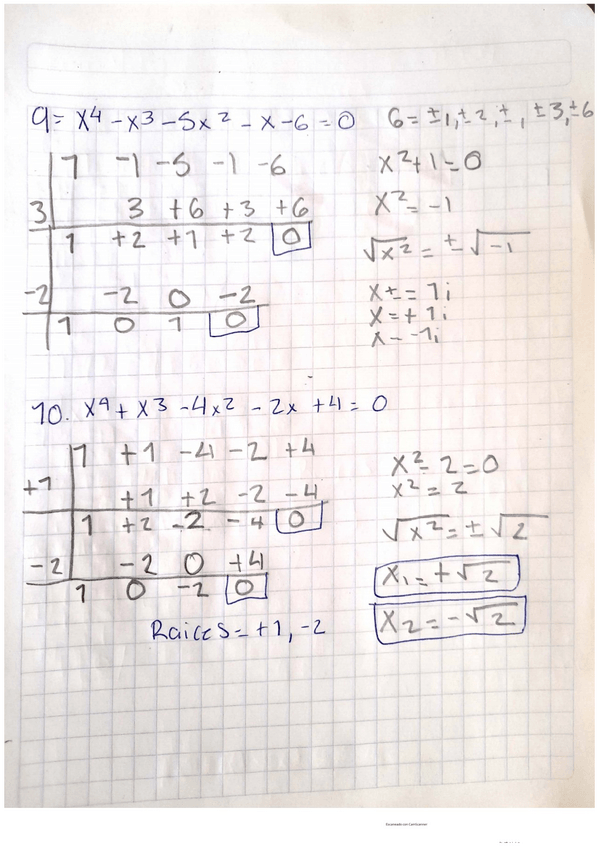 9= x⁴ -x³ -5x² -x -6 =0
6= ±1, ±2, ±, ±3, ±6
1 -1 -5 -1 -6
3 3 +6 +3 +6
1 +2 +1 +2 0
-2 -2 0 -2
1 0 1 0
x²+1=0
x²= -1
√x² = ±√-1
x±= 1i
x=+1i
x- -1i
10. x⁴+ x³ -4x² -2x +4= 0
1 +1 -4 -2 +4
+1 +1 +2 -2 -4
1 +2 -2 -4 0
-2 -2 0 +4
1 0 -2 0
Raices= +1, -2
x²- 2=0
x²= 2
√x²=±√2
x₁=+√2
x₂=-√2
Escaneado con CamScanner